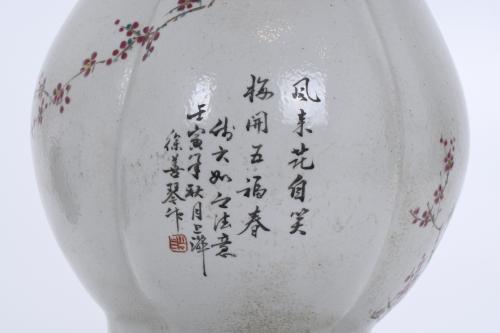 風来花自笑
梅開五福春
時六如之法意
壬寅年秋月上澣
徐善琴作